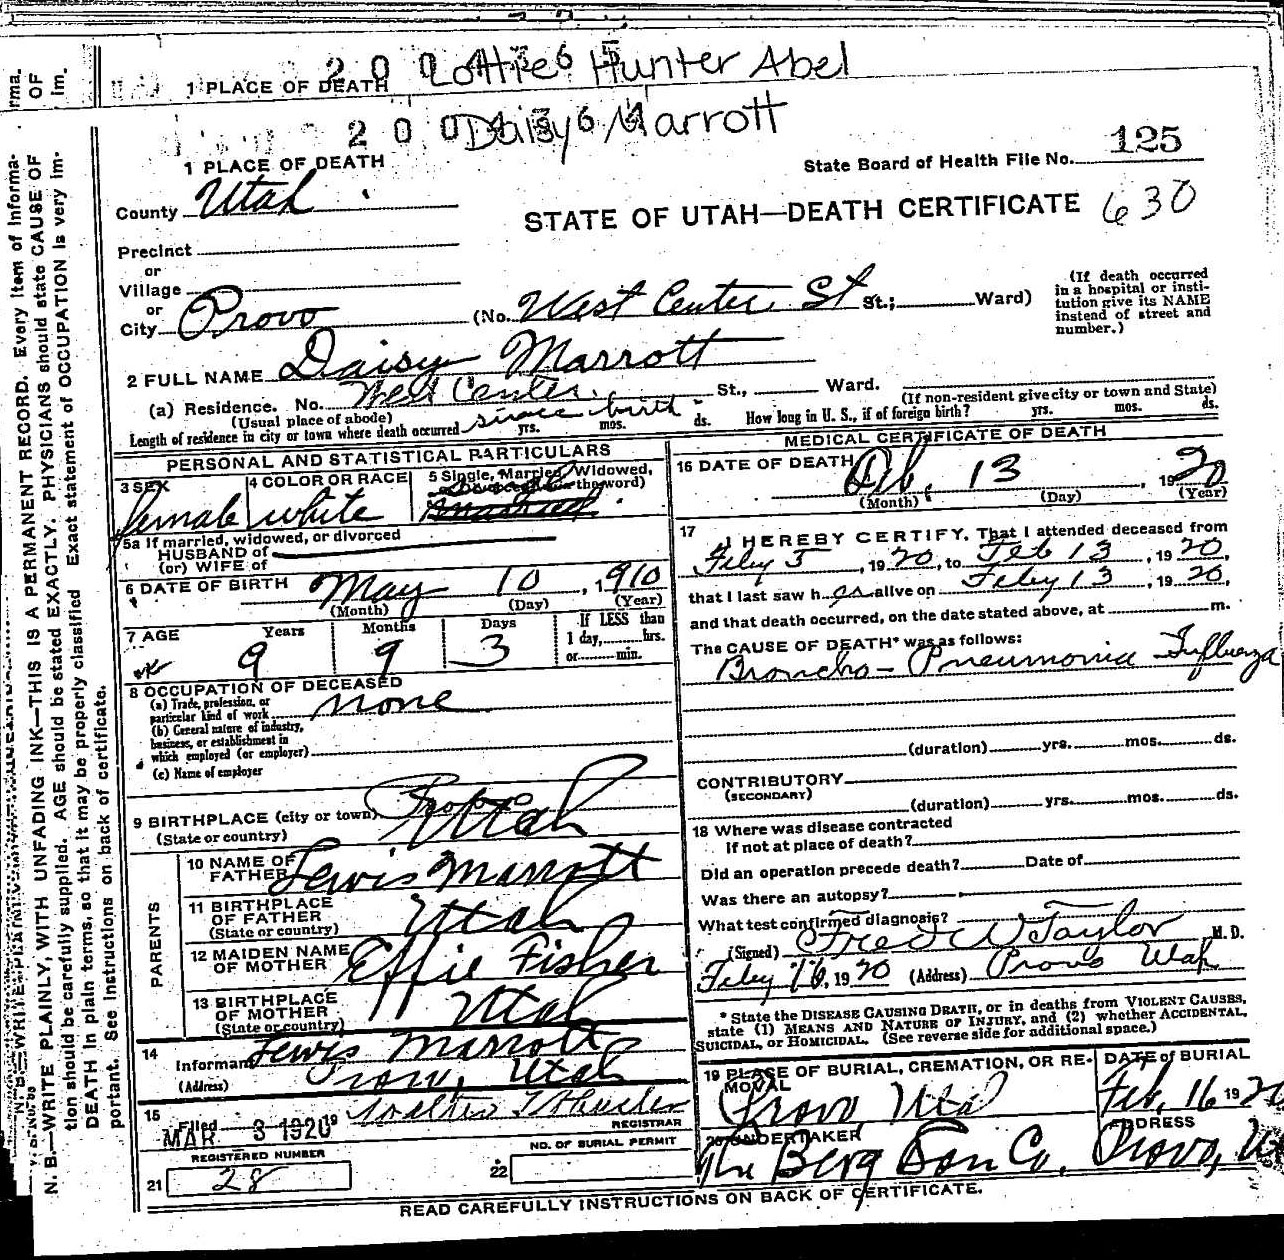 rma.
OF
Im.
2 0 0 Lottie Hunter Abel
1 PLACE OF DEATH
2 0 0 Daisy Marrott
1 PLACE OF DEATH
State Board of Health File No. 125
County Utah
STATE OF UTAH—DEATH CERTIFICATE 630
Precinct
or
Village
or
City Provo (No. West Center St St.; Ward)
(If death occurred
in a hospital or insti-
tution give its NAME
instead of street and
number.)
2 FULL NAME Daisy Marrott
(a) Residence. No. West Center. St., Ward.
(Usual place of abode)
(If non-resident give city or town and State)
Length of residence in city or town where death occurred since birth yrs. mos. ds. How long in U. S., if of foreign birth? yrs. mos. ds.
PERSONAL AND STATISTICAL PARTICULARS
3 SEX
female
4 COLOR OR RACE
white
5 Single, Married, Widowed,
(the word)
5a If married, widowed, or divorced
HUSBAND of
(or) WIFE of
6 DATE OF BIRTH May 10, 1910
(Month) (Day) (Year)
7 AGE Years Months Days If LESS than
1 day, hrs.
or min.
9 9 3
8 OCCUPATION OF DECEASED
(a) Trade, profession, or
particular kind of work none
(b) General nature of industry,
business, or establishment in
which employed (or employer)
(c) Name of employer
9 BIRTHPLACE (city or town) Provo
(State or country) Utah
PARENTS
10 NAME OF
FATHER Lewis Marrott
11 BIRTHPLACE
OF FATHER
(State or country) Utah
12 MAIDEN NAME
OF MOTHER Effie Fisher
13 BIRTHPLACE
OF MOTHER
(State or country) Utah
14
Informant Lewis Marrott
(Address) Provo, Utah
15
Filed MAR 3 1920 19
REGISTRAR
REGISTERED NUMBER
21 28
NO. OF BURIAL PERMIT
22
MEDICAL CERTIFICATE OF DEATH
16 DATE OF DEATH Feb. 13, 1920
(Month) (Day) (Year)
17 I HEREBY CERTIFY, That I attended deceased from
Feby 5, 1920, to Feb 13, 1920,
that I last saw her alive on Feby 13, 1920,
and that death occurred, on the date stated above, at m.
The CAUSE OF DEATH* was as follows:
Broncho-Pneumonia Influenza
(duration) yrs. mos. ds.
CONTRIBUTORY
(SECONDARY)
(duration) yrs. mos. ds.
18 Where was disease contracted
If not at place of death?
Did an operation precede death? Date of
Was there an autopsy?
What test confirmed diagnosis?
(Signed) Fred W Taylor M. D.
Feby 16, 1920 (Address) Provo Utah
* State the DISEASE CAUSING DEATH, or in deaths from VIOLENT CAUSES,
state (1) MEANS AND NATURE OF INJURY, and (2) whether ACCIDENTAL,
SUICIDAL, or HOMICIDAL. (See reverse side for additional space.)
19 PLACE OF BURIAL, CREMATION, OR RE-
MOVAL
Provo Utah
DATE of BURIAL
Feb, 16 1920
20 UNDERTAKER
The Berg Son Co.
ADDRESS
Provo, U
READ CAREFULLY INSTRUCTIONS ON BACK OF CERTIFICATE.
N. B.—WRITE PLAINLY, WITH UNFADING INK—THIS IS A PERMANENT RECORD. Every item of informa-
tion should be carefully supplied. AGE should be stated EXACTLY. PHYSICIANS should state CAUSE OF
DEATH in plain terms, so that it may be properly classified. Exact statement of OCCUPATION is very im-
portant. See instructions on back of certificate.